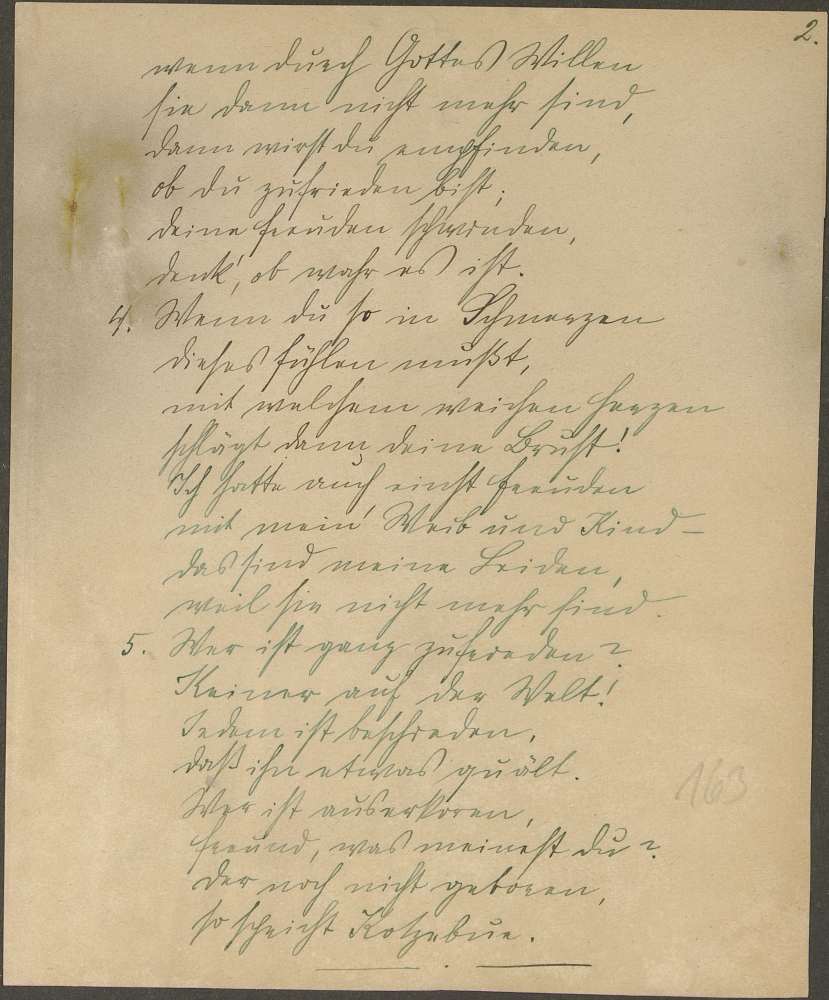 2.
wenn durch Gottes Willen
sie dann nicht mehr sind,
dann wirst du empfinden,
ob du zufrieden bist;
deine Freuden schwinden,
denk', ob wahr es ist.
4. Wenn du so in Schmerzen
dieses fühlen mußt,
mit welchem weichen Herzen
schlägt dann deine Brust!
Ich hatte auch einst Freuden
mit mein' Weib und Kind –
das sind meine Leiden,
weil sie nicht mehr sind.
5. Wer ist ganz zufrieden?
Keiner auf der Welt!
Jedem ist beschieden,
daß ihn etwas quält.
Wer ist auserkoren,
Freund, was meinest du?
Der noch nicht geboren,
so spricht Kotzebue.
163